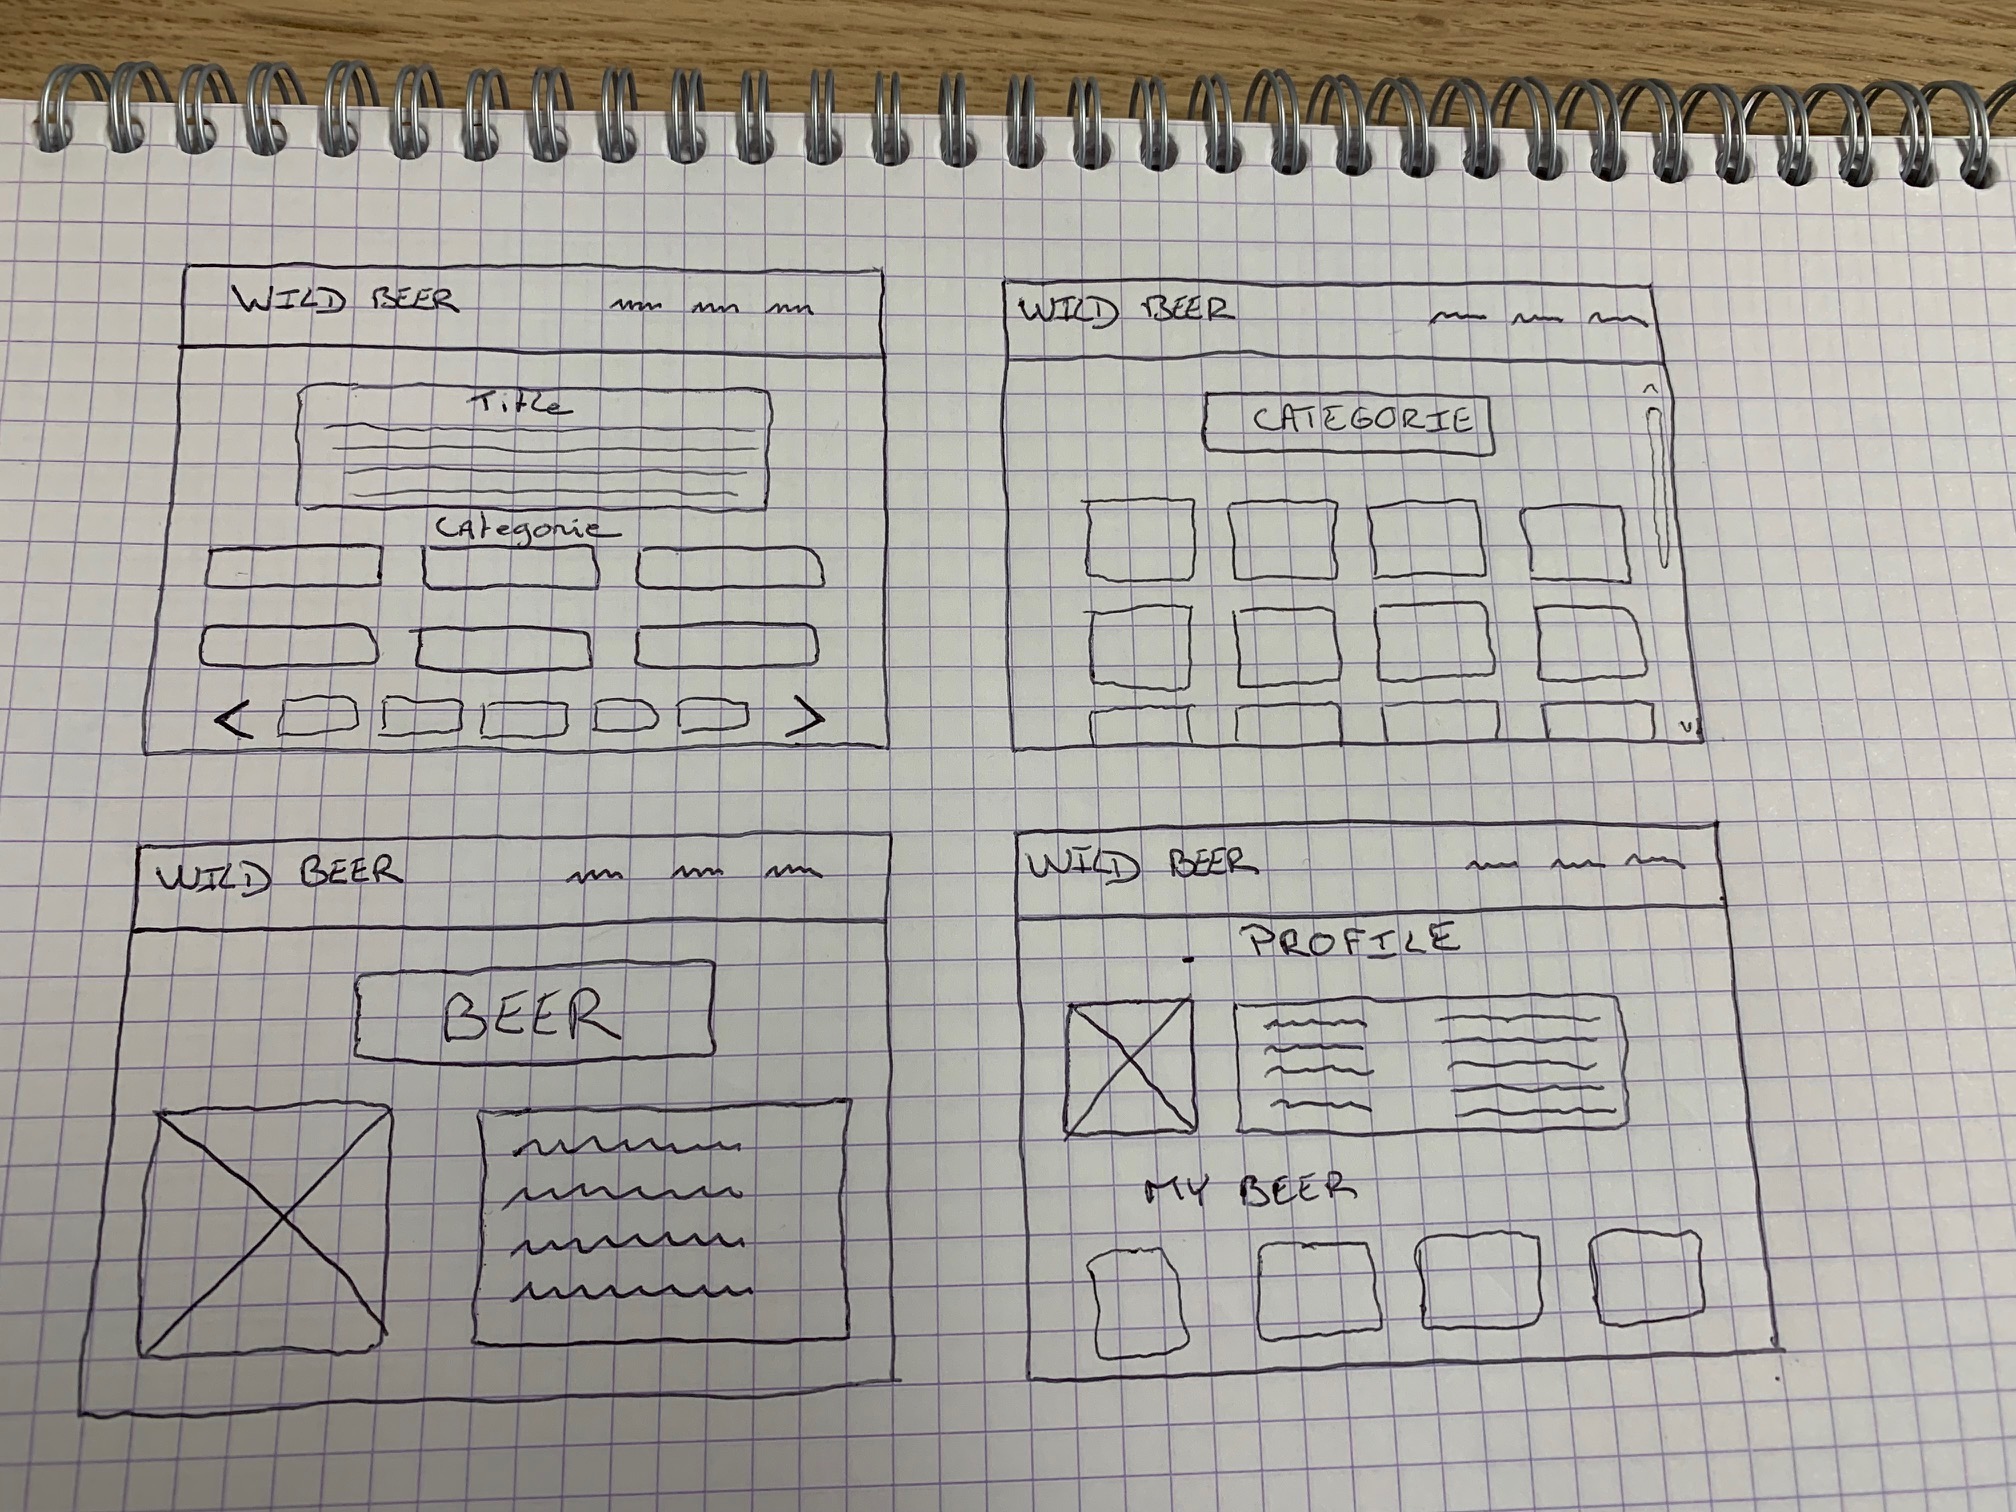 WILD BEER
Title
CAtegorie
WILD BEER
CATEGORIE
WILD BEER
BEER
WILD BEER
PROFILE
MY BEER